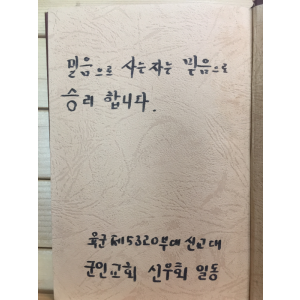 믿음으로 사는자는 믿음으로
승리 합니다.
육군제5320부대 신교대
군인교회 신우회 일동